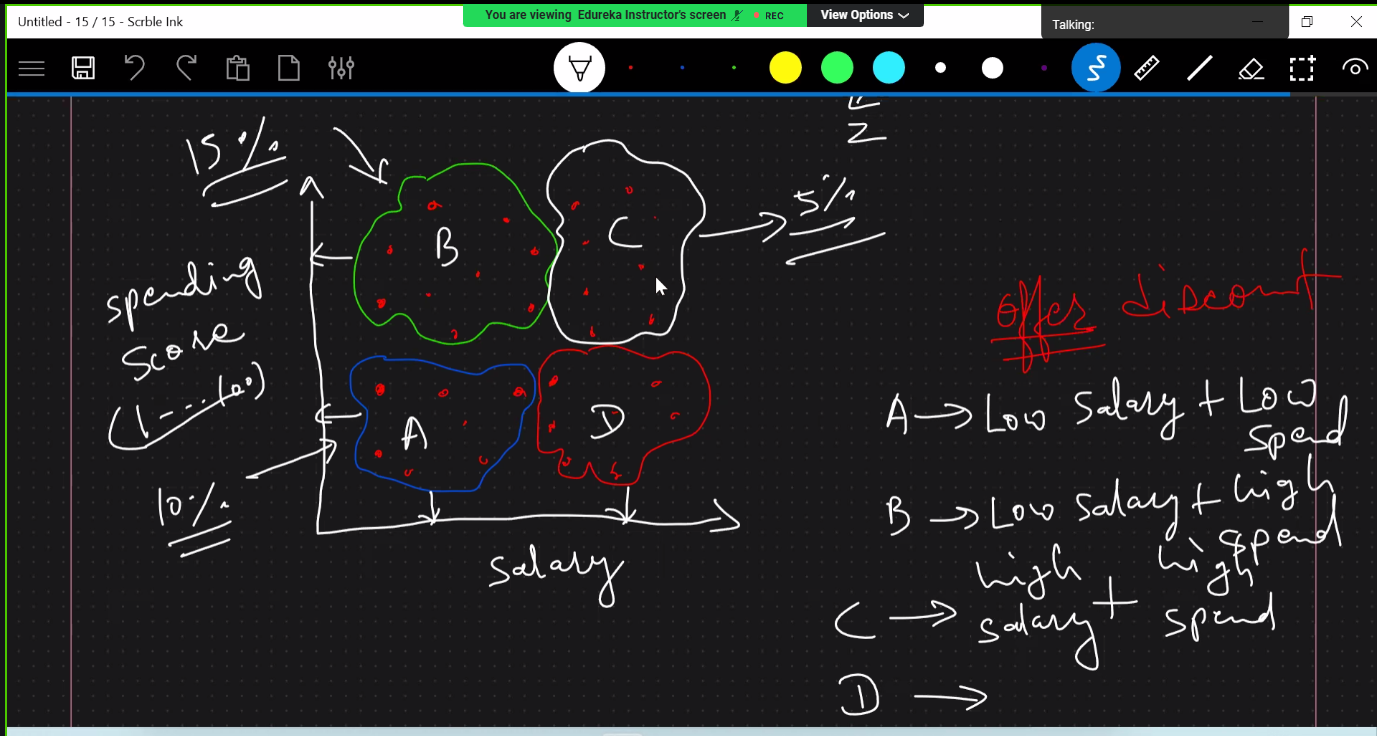 Untitled - 15 / 15 - Scrble Ink
You are viewing Edureka Instructor's screen
REC
View Options
Talking:
2
15%
B
C
5%
spending
score
(1---100)
offer discount
A
D
A → Low Salary + Low
spend
10%
B → Low Salary + high
spend
salary
C → high salary + high
spend
D →